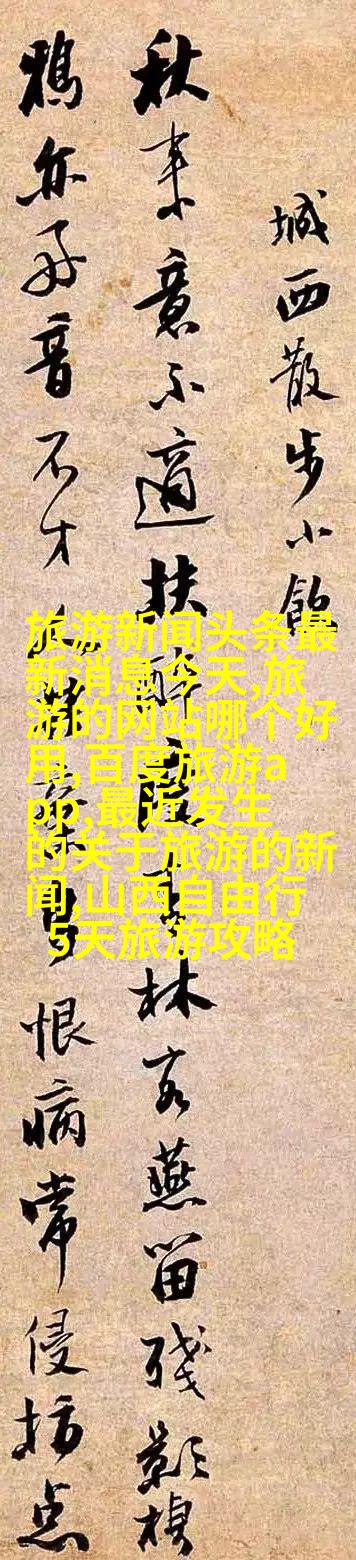 城西散步小飲
秋來意不適扶醉度林客燕留殘影棲
鴉亦好音不才恨病常侵点
旅游新闻头条最
新消息今天,旅
游的网站哪个好
用,百度旅游a
pp,最近发生
的关于旅游的新
闻,山西自由行
5天旅游攻略